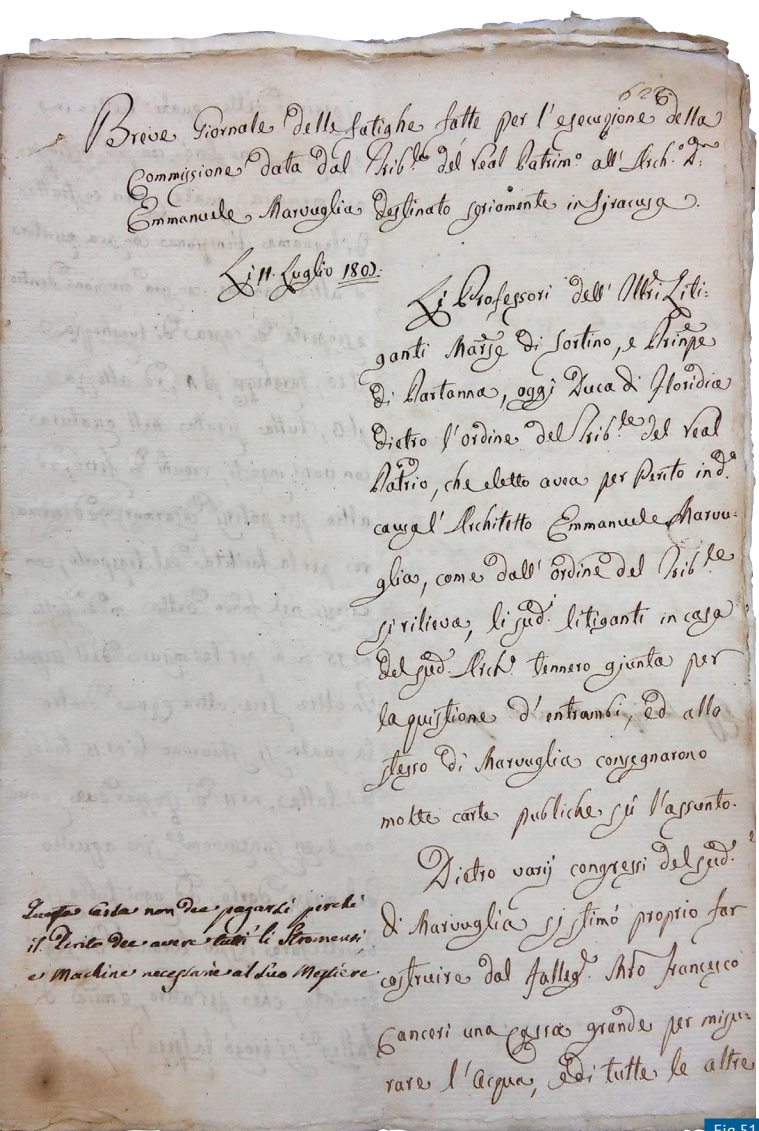 626
Breve Giornale delle fatighe fatte per l'esecuzione della
Commissione data dal Trib.le del Real Patrim.o all' Arch.o D.n
Emmanuele Marvuglia destinato in Siracusa.
Li 11. Luglio
Li Professori dell' Ill.tri Liti-
ganti Marse di Sortino, e Prinpe
di Partanna, oggi Duca di Floridia
dietro l'ordine del Trib.le del Real
Patrio, che eletto avea per Perito in d.a
causa l'Architetto Emmanuele Marvu-
glia, come dall'ordine del Trib.le
si rilieva, li sud.i litiganti in casa
del sud.o Arch.o tennero giunta per
la quistione d'entrambi, ed allo
stesso di Marvuglia consegnarono
molte carte publiche sù l'assunto.
Dietro varij congressi del sud.o
di Marvuglia si stimò proprio far
costruire dal falleg.e Mro Francesco
Canceri una cassa grande per misu-
rare l'acqua, e di tutte le altre
Questa Casa non dee pagarsi perchè
il Perito dee avere tutti li Stromenti
e Machine necessarie al suo Mestiere
Fig 51